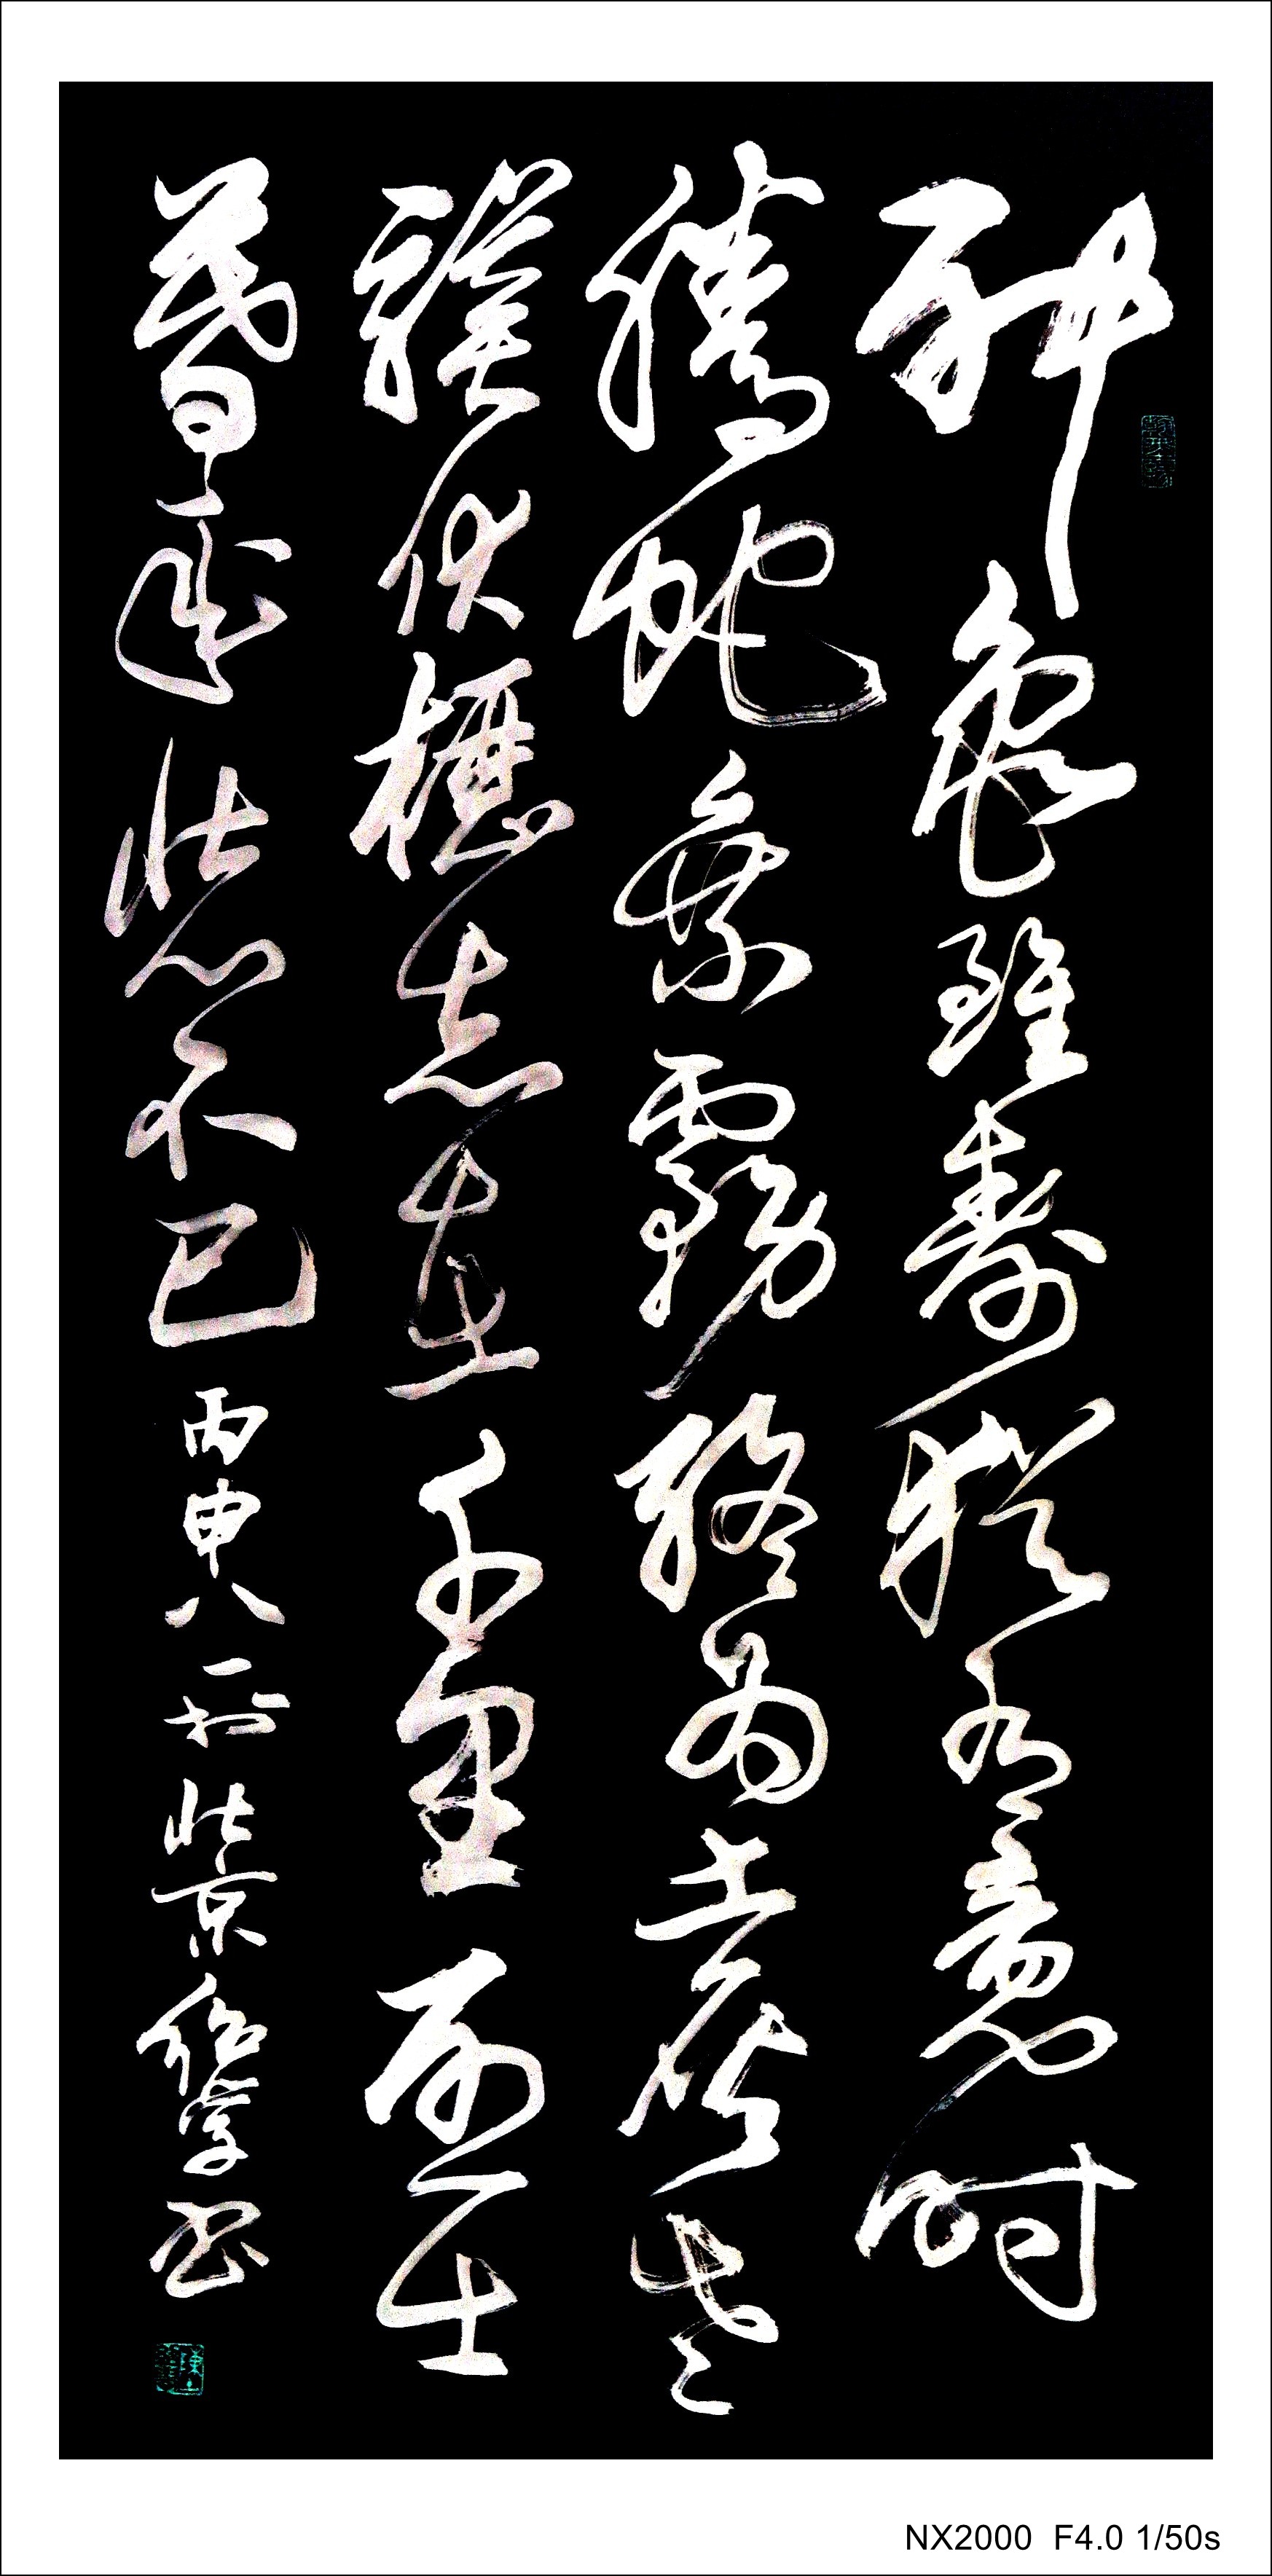 神龜雖壽猶有竟时
騰蛇乘霧終为土灰老
驥伏櫪志在千里烈士
暮年壮心不已 丙申八一於北京 学书
NX2000 F4.0 1/50s